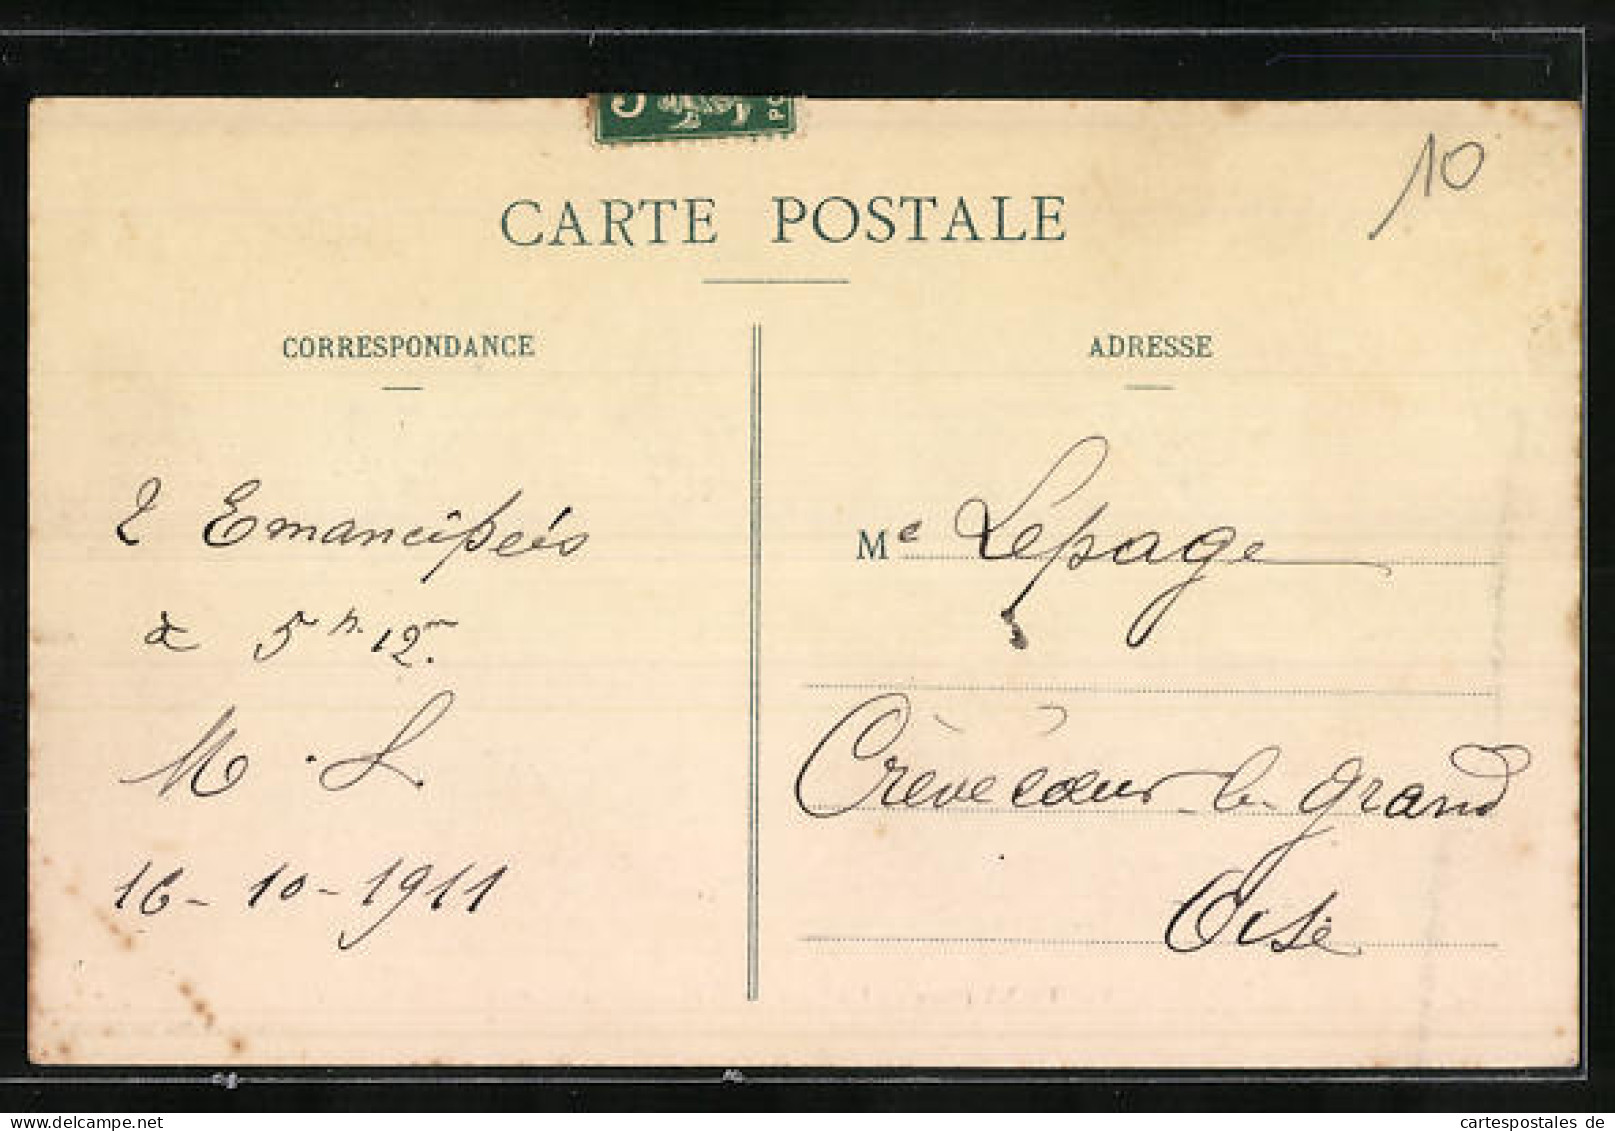 5 PO
10
CARTE POSTALE
CORRESPONDANCE
ADRESSE
2 Emancipés
à 5 h. 12 m
M. L.
16-10-1911
Me Lepage
Crèvecœur-le-grand
Oise
cartespostales de